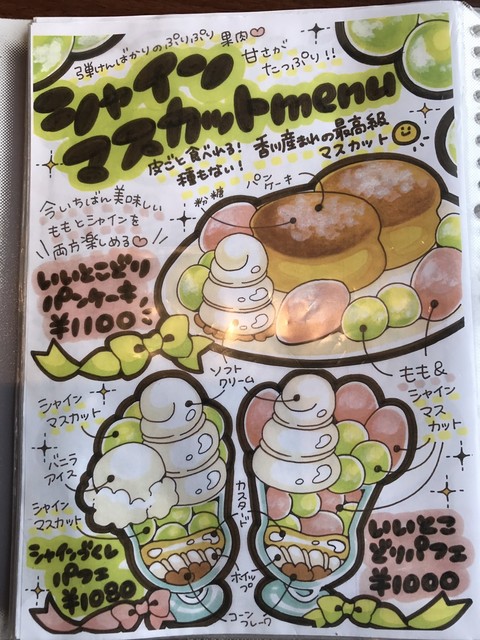 弾けんばかりのぷりぷり果肉♡
甘さが
たっぷり!!
シャイン
マスカットmenu
皮ごと食べれる!
種もない!
香川産まれの最高級
マスカット
今いちばん美味しい
ももとシャインを
両方楽しめる♡
いいとこどり
パンケーキ!
¥1100
粉糖
パン
ケーキ
ソフト
クリーム
もも&
シャイン
マス
カット
シャイン
マスカット
バニラ
アイス
シャイン
マスカット
カスタード
ホイップ
コーン
フレーク
シャインづくし
パフェ
¥1080
いいとこ
どりパフェ
¥1000